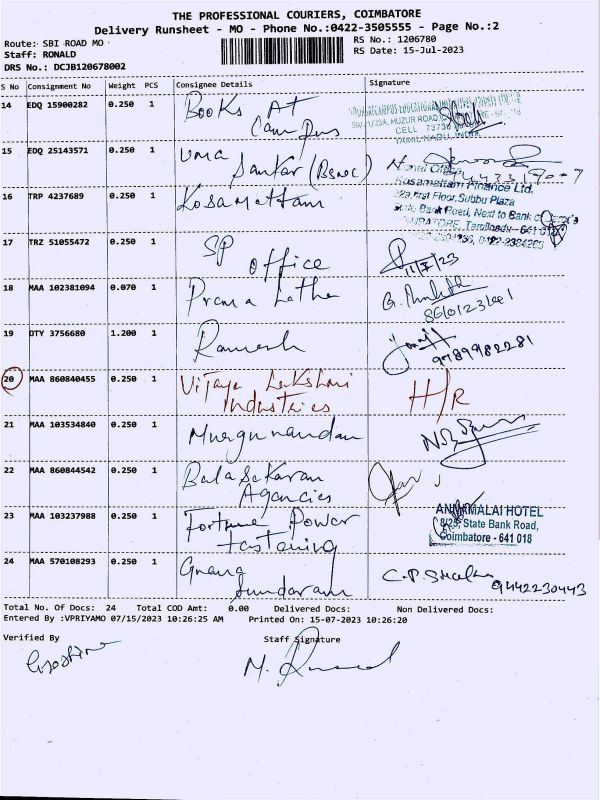 THE PROFESSIONAL COURIERS, COIMBATORE
Delivery Runsheet - MO - Phone No.:0422-3505555 - Page No.:2
Route: SBI ROAD MO
RS No.: 1206780
Staff: RONALD
RS Date: 15-Jul-2023
DRS No.: DCJB120678002
S No Consignment No Weight PCS Consignee Details Signature
14 EDQ 15900282 0.250 1 Books At
Campus
59/1/23A, HUZUR ROAD
CELL
TAMIL NADU, INDIA
15 EDQ 25143571 0.250 1 Uma
Sankar (BSNL)
16 TRP 4237689 0.250 1 Kosamattam
Kosamattam Finance Ltd,
First Floor, Subbu Plaza
State Bank Road, Next to Bank of
Tamilnadu - 641 018
17 TRZ 51055472 0.250 1 SP
office
18 MAA 102381094 0.070 1 Prema Latha
19 DTY 3756680 1.200 1 Ramesh
9789982281
20 MAA 860840455 0.250 1 Vijaya Lakshmi
Industries
H/R
21 MAA 103534840 0.250 1 Murgunandan
22 MAA 860844542 0.250 1 Balasekaran
Agencies
23 MAA 103237988 0.250 1 Fortune Power
fastening
ANNAMALAI HOTEL
8/25, State Bank Road,
Coimbatore - 641 018
24 MAA 570108293 0.250 1 Gnana
Sundaram
9442230443
Total No. Of Docs: 24 Total COD Amt: 0.00 Delivered Docs: Non Delivered Docs:
Entered By :VPRIYAMO 07/15/2023 10:26:25 AM Printed On: 15-07-2023 10:26:20
Verified By
Staff Signature